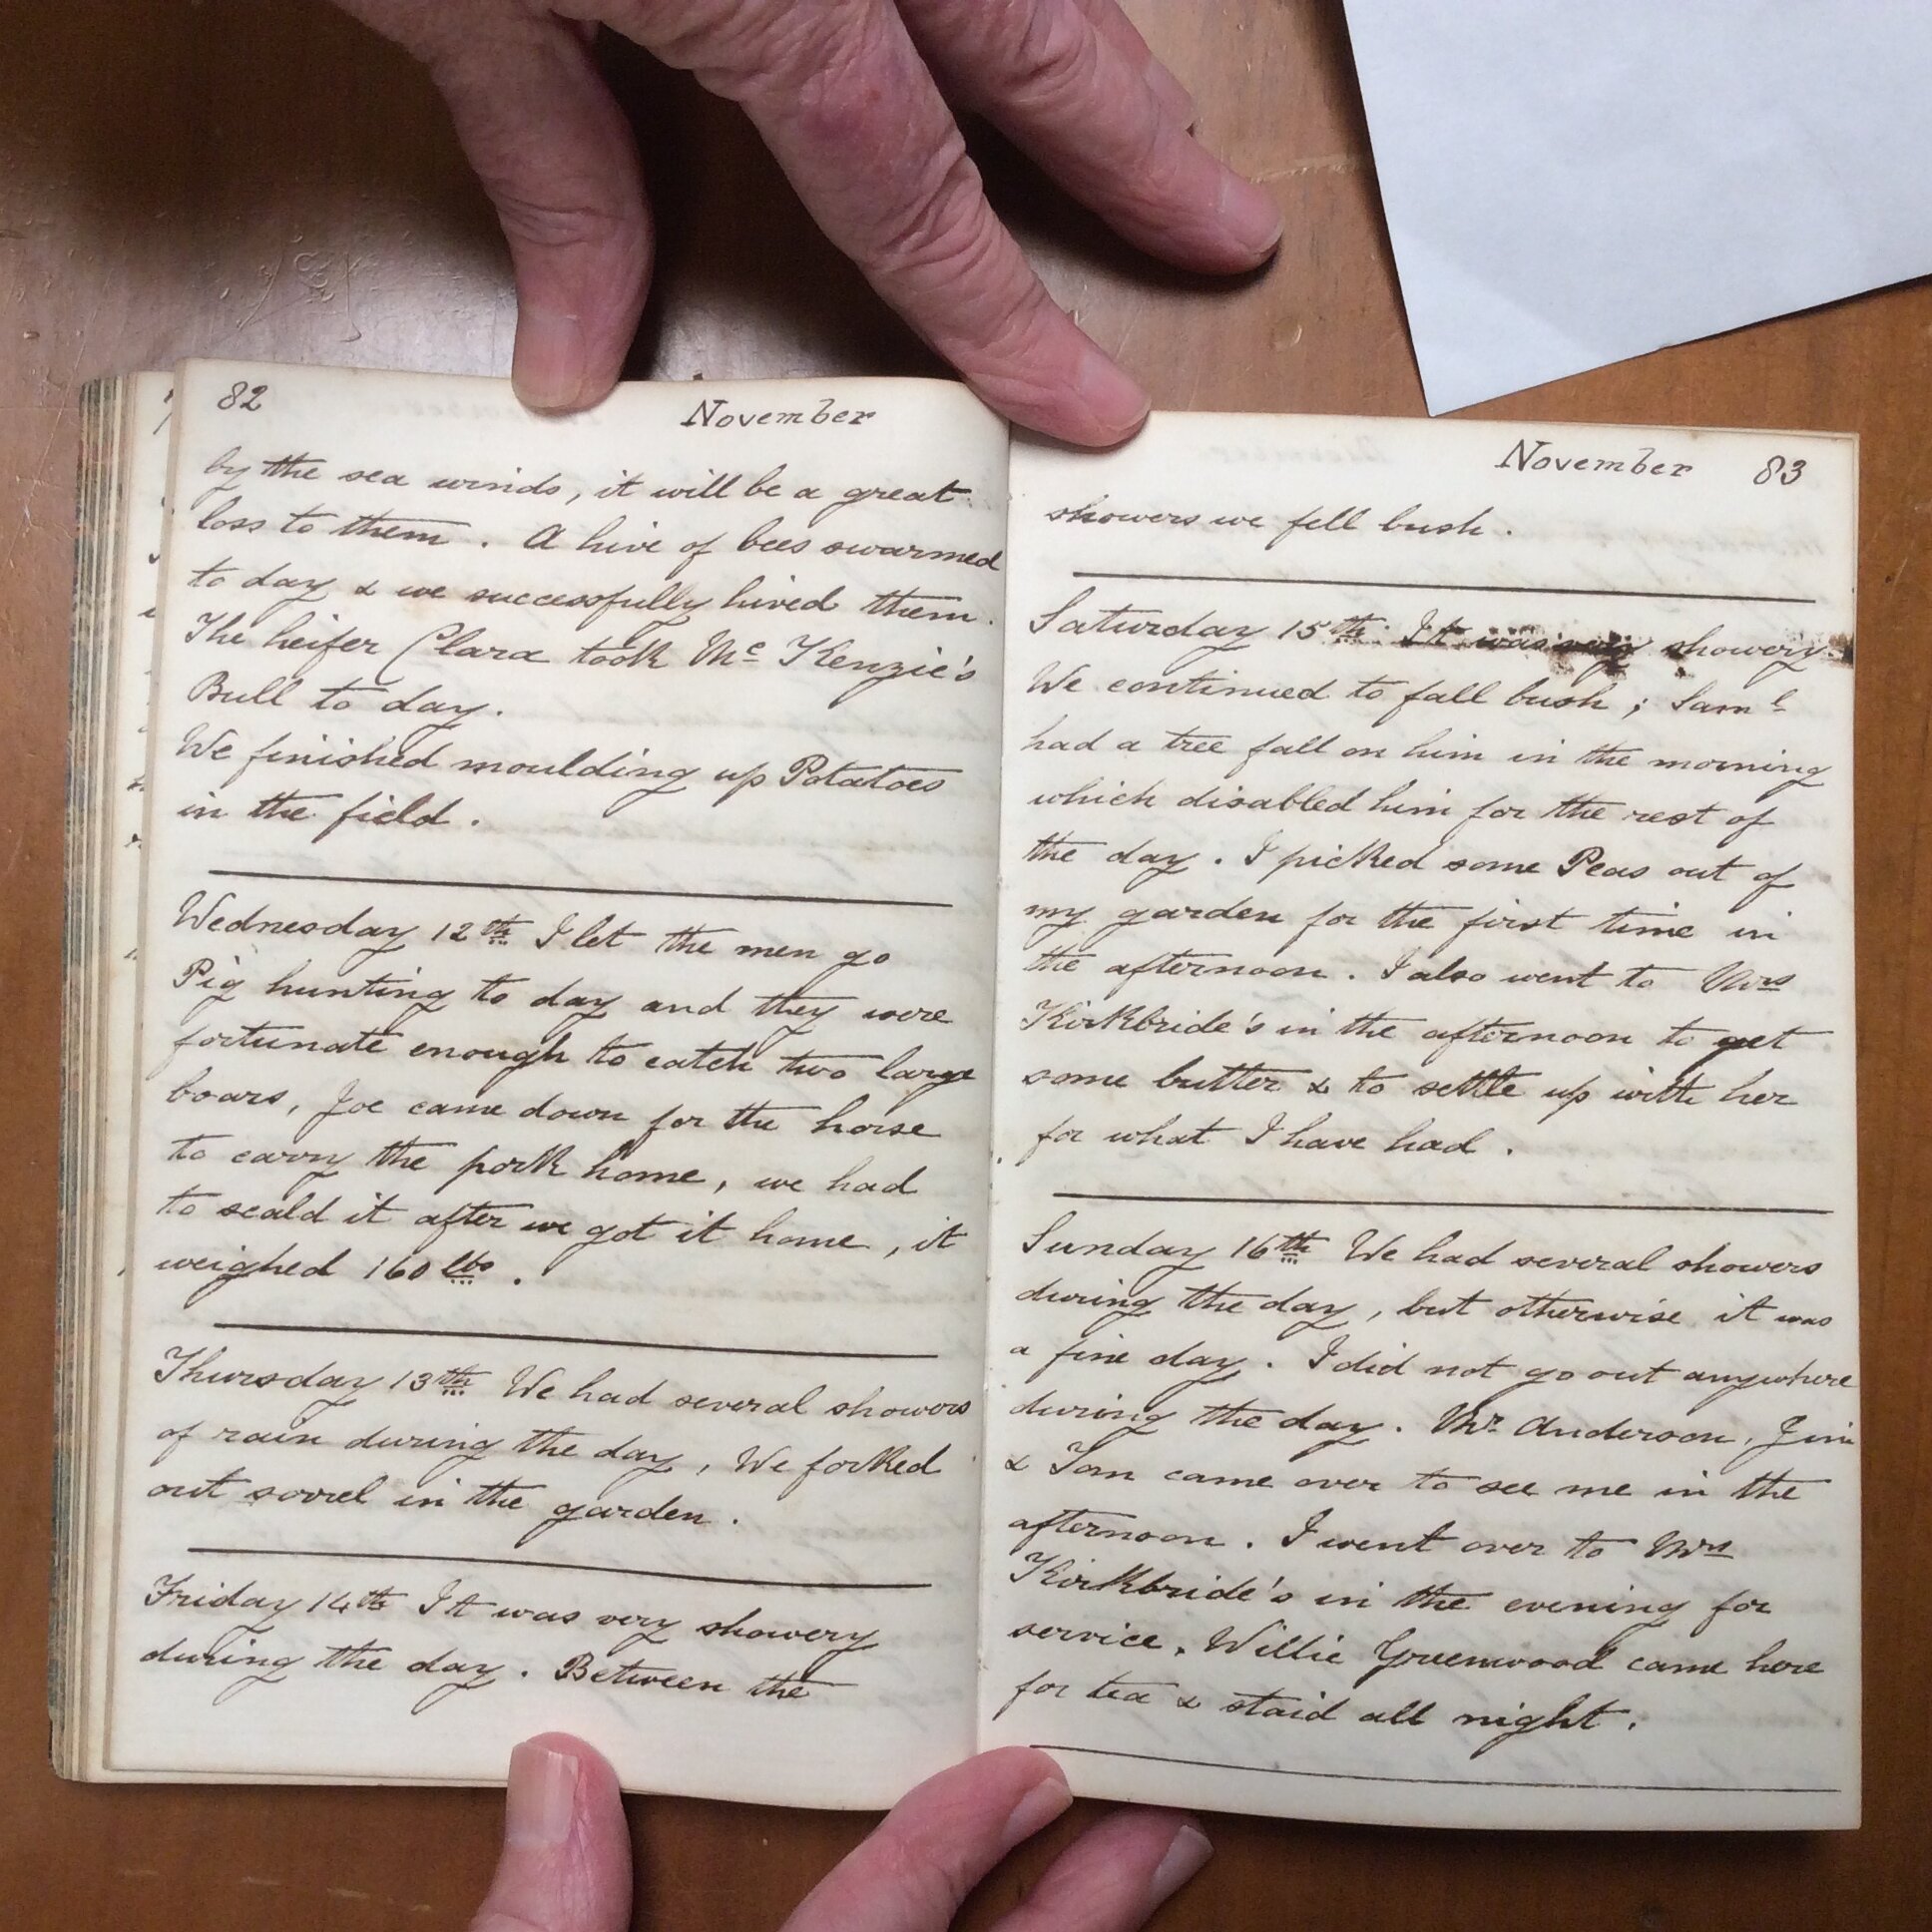 82
November
by the sea winds, it will be a great
loss to them. A hive of bees swarmed
to day & we successfully hived them.
The heifer Clara took Mc Kenzie's
Bull to day.
We finished moulding up Potatoes
in the field.
Wednesday 12th I let the men go
Pig hunting to day and they were
fortunate enough to catch two large
boars, Joe came down for the horse
to carry the pork home, we had
to scald it after we got it home, it
weighed 160 lbs.
Thursday 13th We had several showers
of rain during the day, We forked
out sorrel in the garden.
Friday 14th It was very showery
during the day. Between the
November 83
showers we fell bush.
Saturday 15th. It was very showery.
We continued to fall bush; Saml
had a tree fall on him in the morning
which disabled him for the rest of
the day. I picked some Peas out of
my garden for the first time in
the afternoon. I also went to Mrs
Kirkbride's in the afternoon to get
some butter & to settle up with her
for what I have had.
Sunday 16th We had several showers
during the day, but otherwise it was
a fine day. I did not go out anywhere
during the day. Mr Anderson, Jim
& Tom came over to see me in the
afternoon. I went over to Mrs
Kirkbride's in the evening for
service. Willie Greenwood came here
for tea & staid all night.